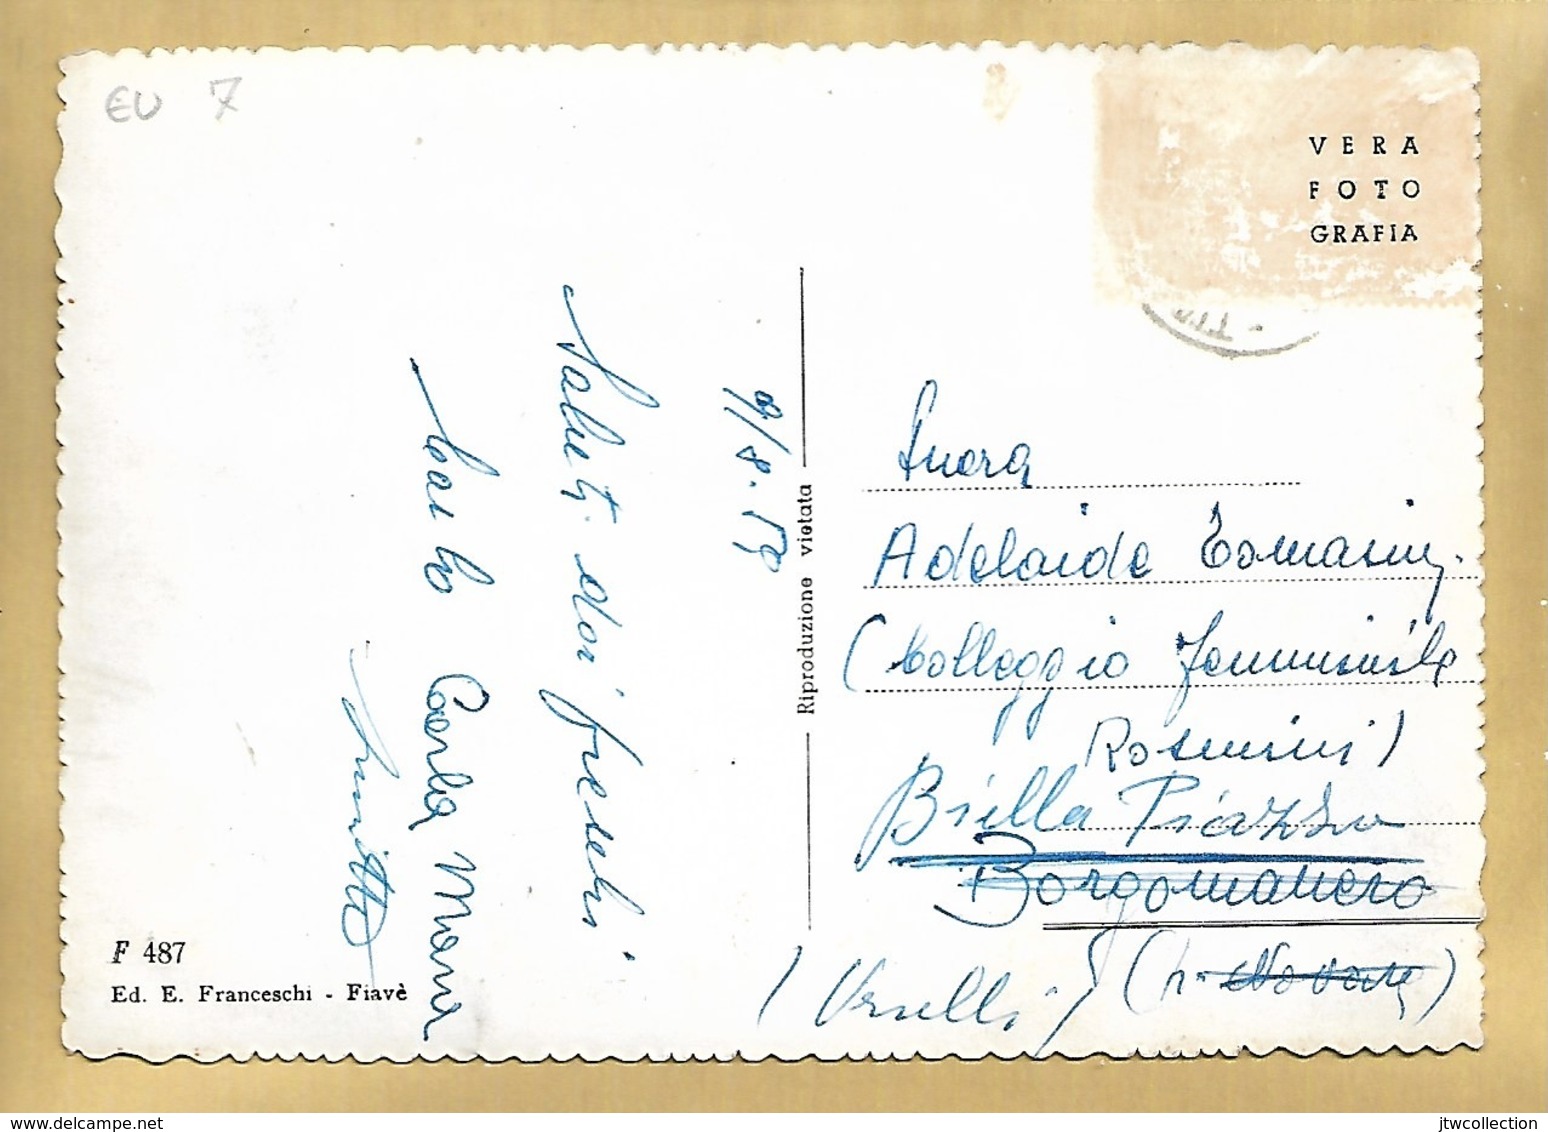 EU 7
VERA
FOTO
GRAFIA
9/8.59
Saluti dai freschi
Carla Maria
F 487
Ed. E. Franceschi - Fiavè
Riproduzione vietata
Suora
Adelaide Tomasini
(Colleggio Femminile
Rosmini)
Biella Piazzo
Borgomanero
(Vercelli)
(Novara)
delcampe.net
jtwcollection